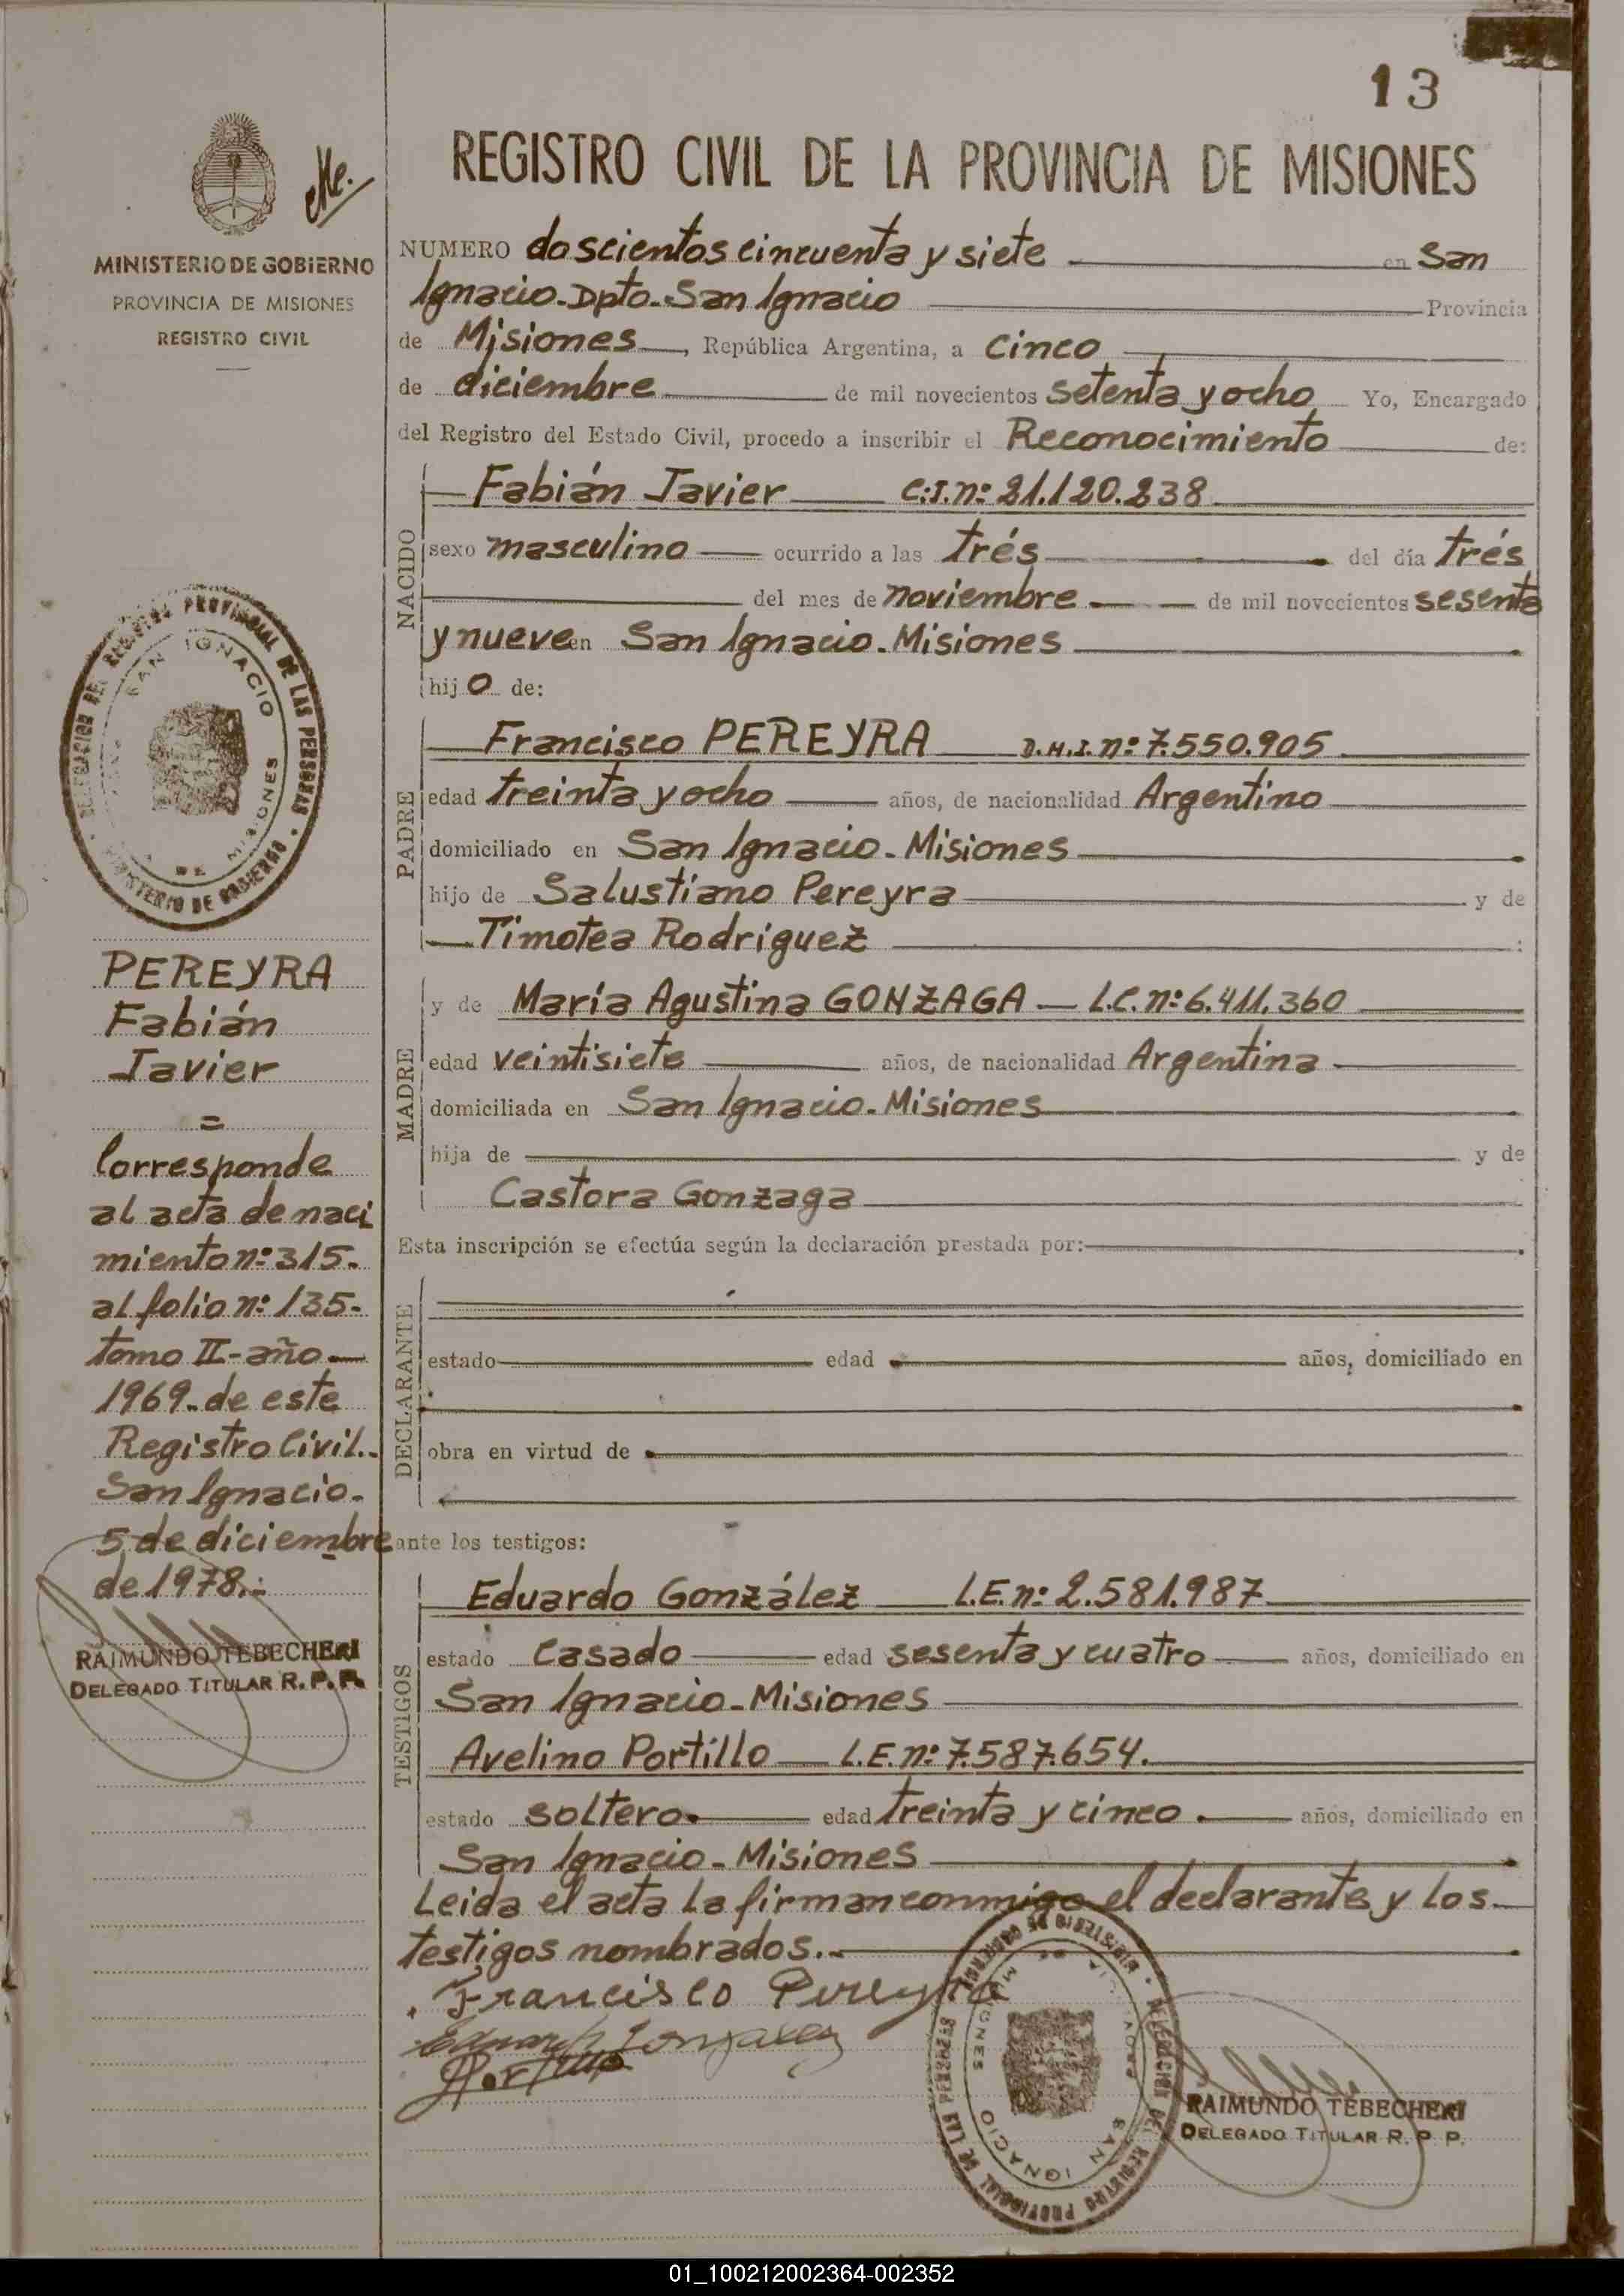 13
REGISTRO CIVIL DE LA PROVINCIA DE MISIONES
Me.
MINISTERIO DE GOBIERNO
PROVINCIA DE MISIONES
REGISTRO CIVIL
NUMERO doscientos cincuenta y siete en San
Ignacio-Dpto-San Ignacio Provincia
de Misiones, República Argentina, a cinco
de diciembre de mil novecientos setenta y ocho Yo, Encargado
del Registro del Estado Civil, procedo a inscribir el Reconocimiento de:
NACIDO
Fabián Javier C.I.nº 21.120.238
sexo masculino ocurrido a las trés del día trés
del mes de noviembre de mil novecientos sesenta
y nueve en San Ignacio-Misiones
hijo de:
PADRE
Francisco PEREYRA D.N.I. nº 7.550.905
edad treinta y ocho años, de nacionalidad Argentino
domiciliado en San Ignacio-Misiones
hijo de Salustiano Pereyra y de
Timotea Rodriguez :
MADRE
y de María Agustina GONZAGA - L.C. nº 6.411.360
edad veintisiete años, de nacionalidad Argentina
domiciliada en San Ignacio-Misiones
hija de y de
Castora Gonzaga
Esta inscripción se efectúa según la declaración prestada por:
DECLARANTE
estado edad años, domiciliado en
obra en virtud de
ante los testigos:
TESTIGOS
Eduardo González L.E.nº 2.581.987
estado casado edad sesenta y cuatro años, domiciliado en
San Ignacio-Misiones
Avelino Portillo L.E.nº 7.587.654.
estado soltero. edad treinta y cinco. años, domiciliado en
San Ignacio-Misiones
Leida el acta la firman conmigo el declarante y los
testigos nombrados.-
Francisco Pereyra
Eduardo Gonzalez
Portillo
DELEGACION DEL REGISTRO PROVINCIAL DE LAS PERSONAS
MINISTERIO DE GOBIERNO
SAN IGNACIO
MISIONES
RAIMUNDO TEBECHERI
DELEGADO TITULAR R. P. P.
DELEGACION DEL REGISTRO PROVINCIAL DE LAS PERSONAS
MINISTERIO DE GOBIERNO
SAN IGNACIO
MISIONES
PEREYRA
Fabián
Javier
=
Corresponde
al acta de naci
miento nº 315.
al folio nº 135-
tomo II-año-
1969.de este
Registro Civil.-
San Ignacio.
5 de diciembre
de 1978.-
RAIMUNDO TEBECHERI
DELEGADO TITULAR R. P. P.
01_100212002364-002352